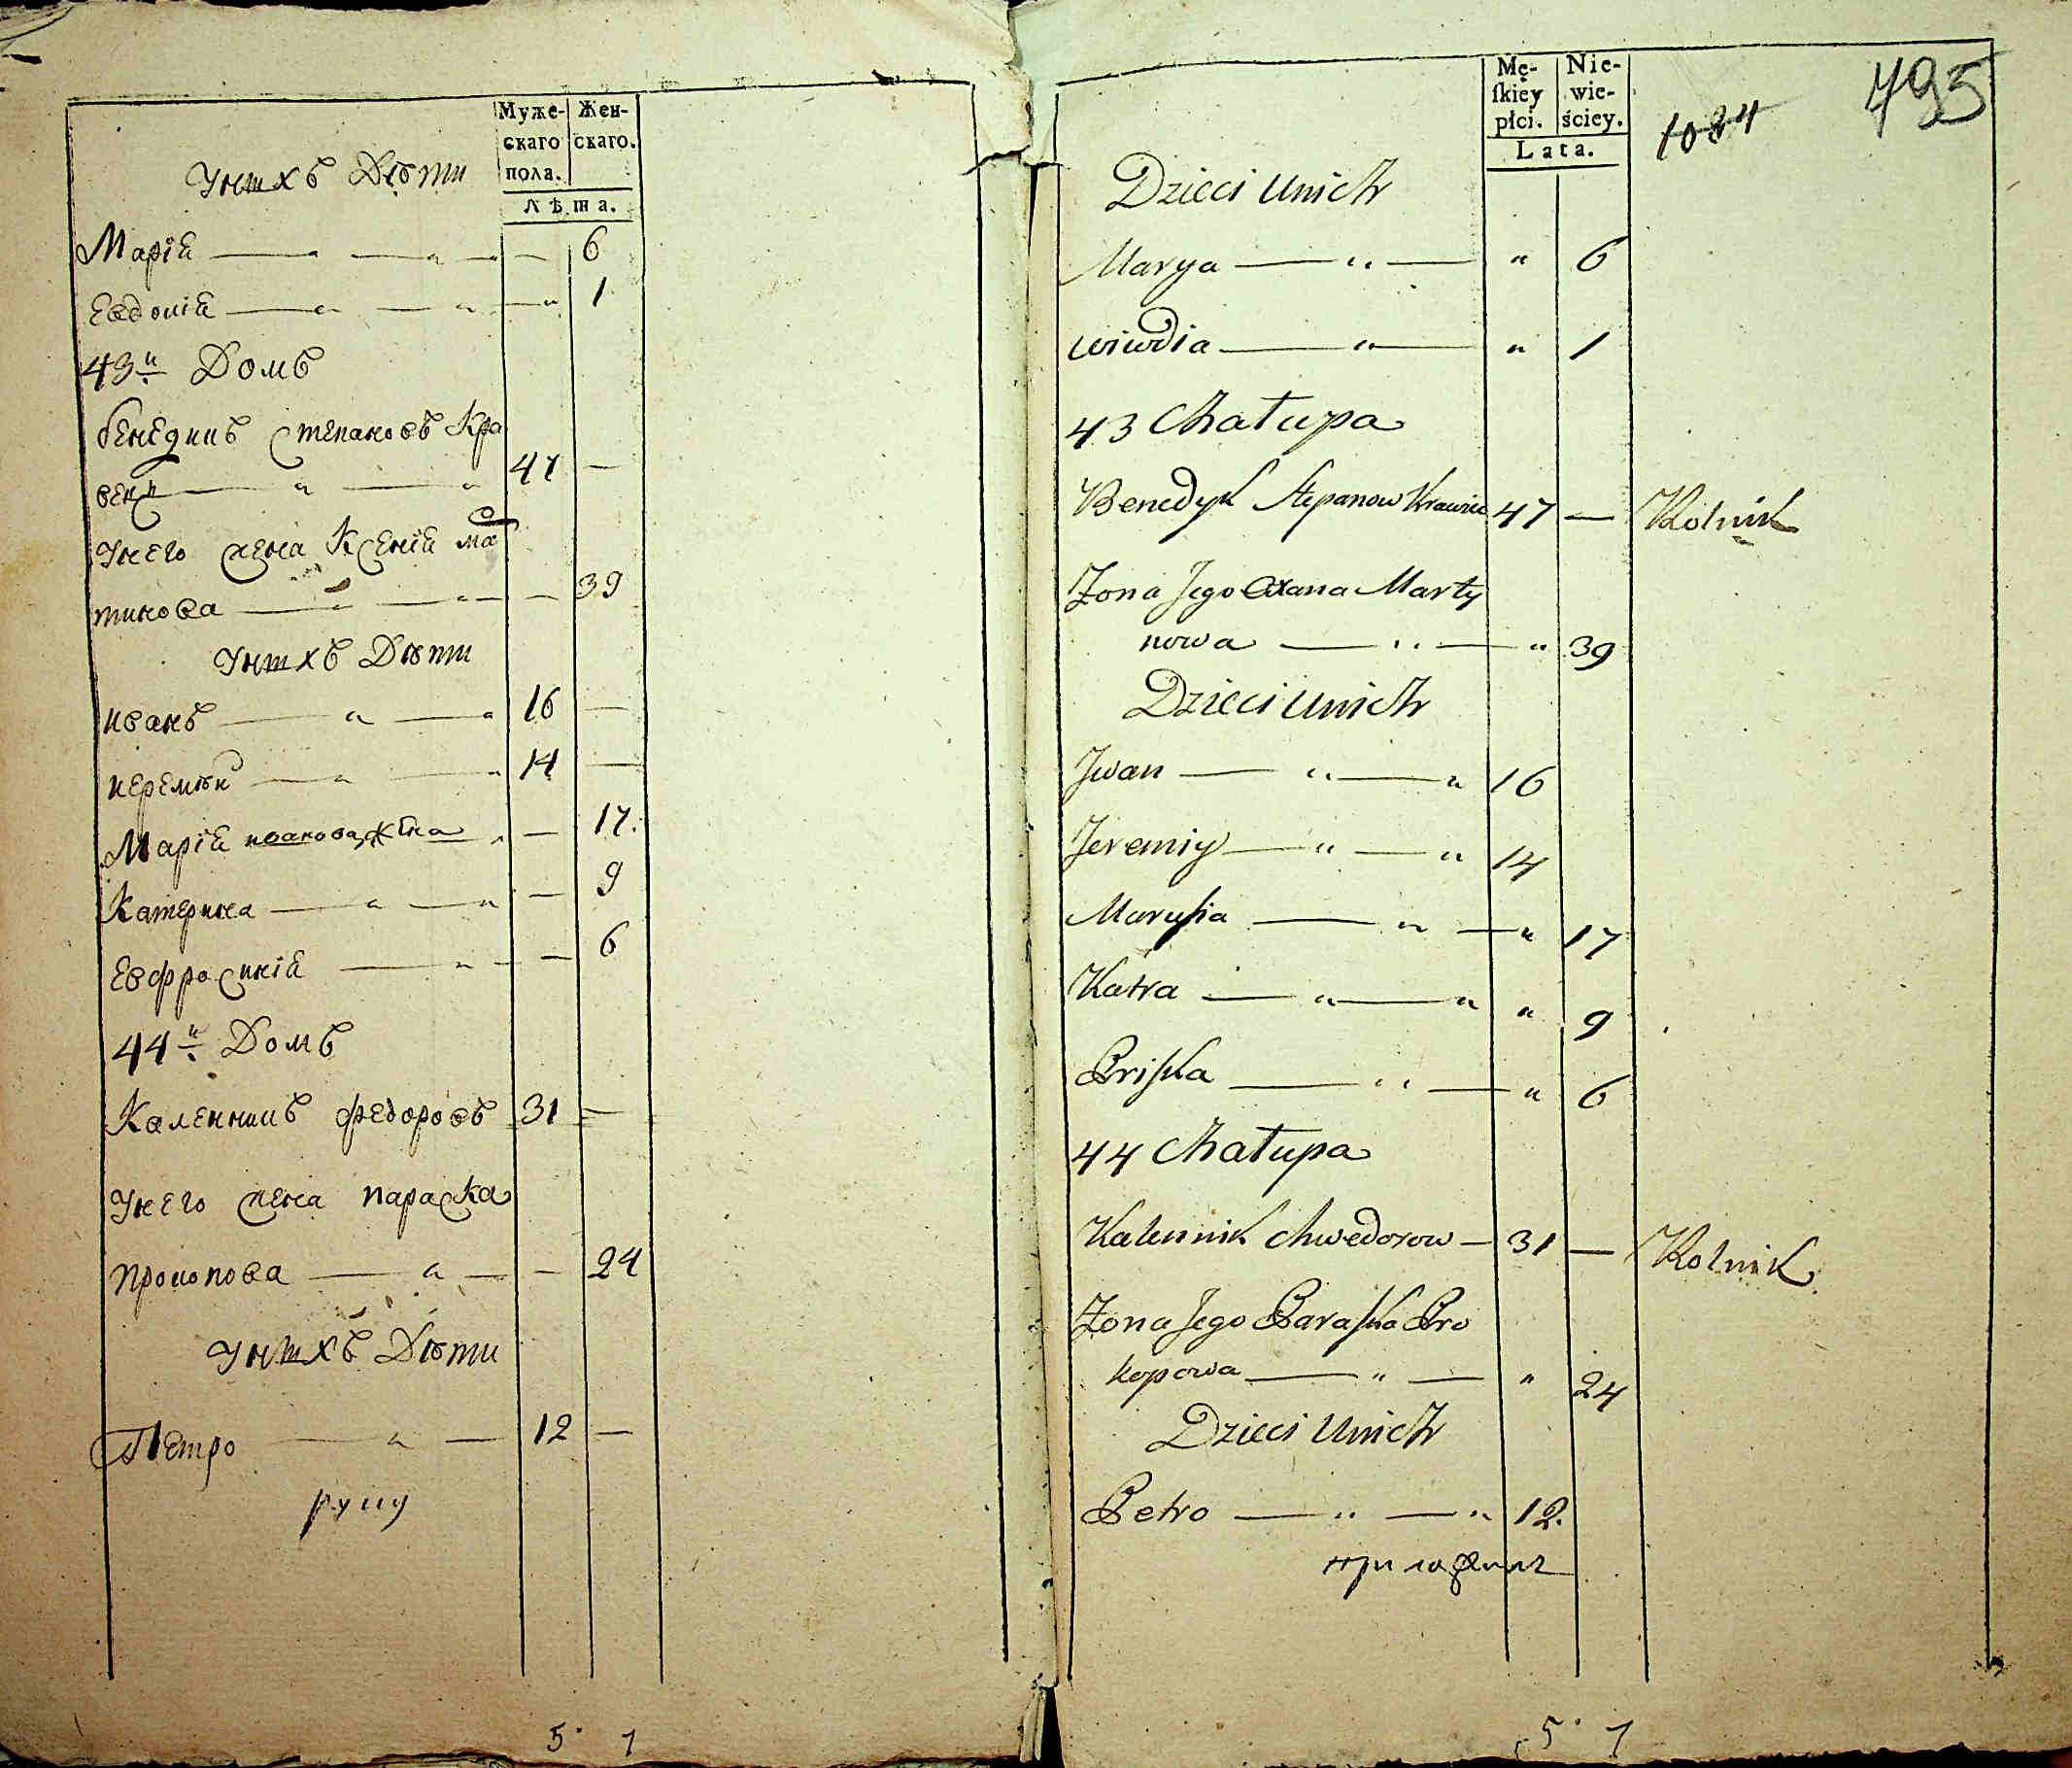 Муже-
скаго
пола.
Жен-
скаго.
Лѣта.
Унихъ Дѣти
Марїѧ — „ — „ — 6
Евдокїѧ — „ — „ — „ 1
43й Домъ
бенедикъ Степановъ Кра
вецъ — „ — „ 47 —
Унего жена Ксенїѧ Ма
тинова — „ — „ — 39
Унихъ Дѣти
иванъ — „ — „ 16 —
иеремѣй — „ — „ 14 —
Марїѧ иванова жена „ — 17.
Катерина — „ — „ — 9
Евфросинїѧ — „ — — 6
44й Домъ
Каленникъ федоровъ 31 —
Унего жена параска
прокопова — „ — — 24
Унихъ Дѣти
Петро — „ — 12 —
руку
5 . 7
Mę-
ſkiey
płci.
Nie-
wie-
ściey.
Lata.
1084
795
Dzieci unich
Marya — „ — „ 6
wiwdia — „ — „ 1
43 Chałupa
Benedyk Stepanow Krawiec 47 — Rolnik
Żona Jego Oxana Marty
nowa — „ — „ 39
Dzieci unich
Jwan — „ — „ 16
Jeremiy — „ — „ 14
Maruſia — „ — „ 17
Katra — „ — „ „ 9
Priſka — „ — „ 6
44 Chałupa
Kalennik Chwedorow — 31 — Rolnik
Żona Jego Paraſka Pro
kopowa — „ — „ 24
Dzieci Unich
Petro — „ — „ 12.
приложилъ
5 . 7